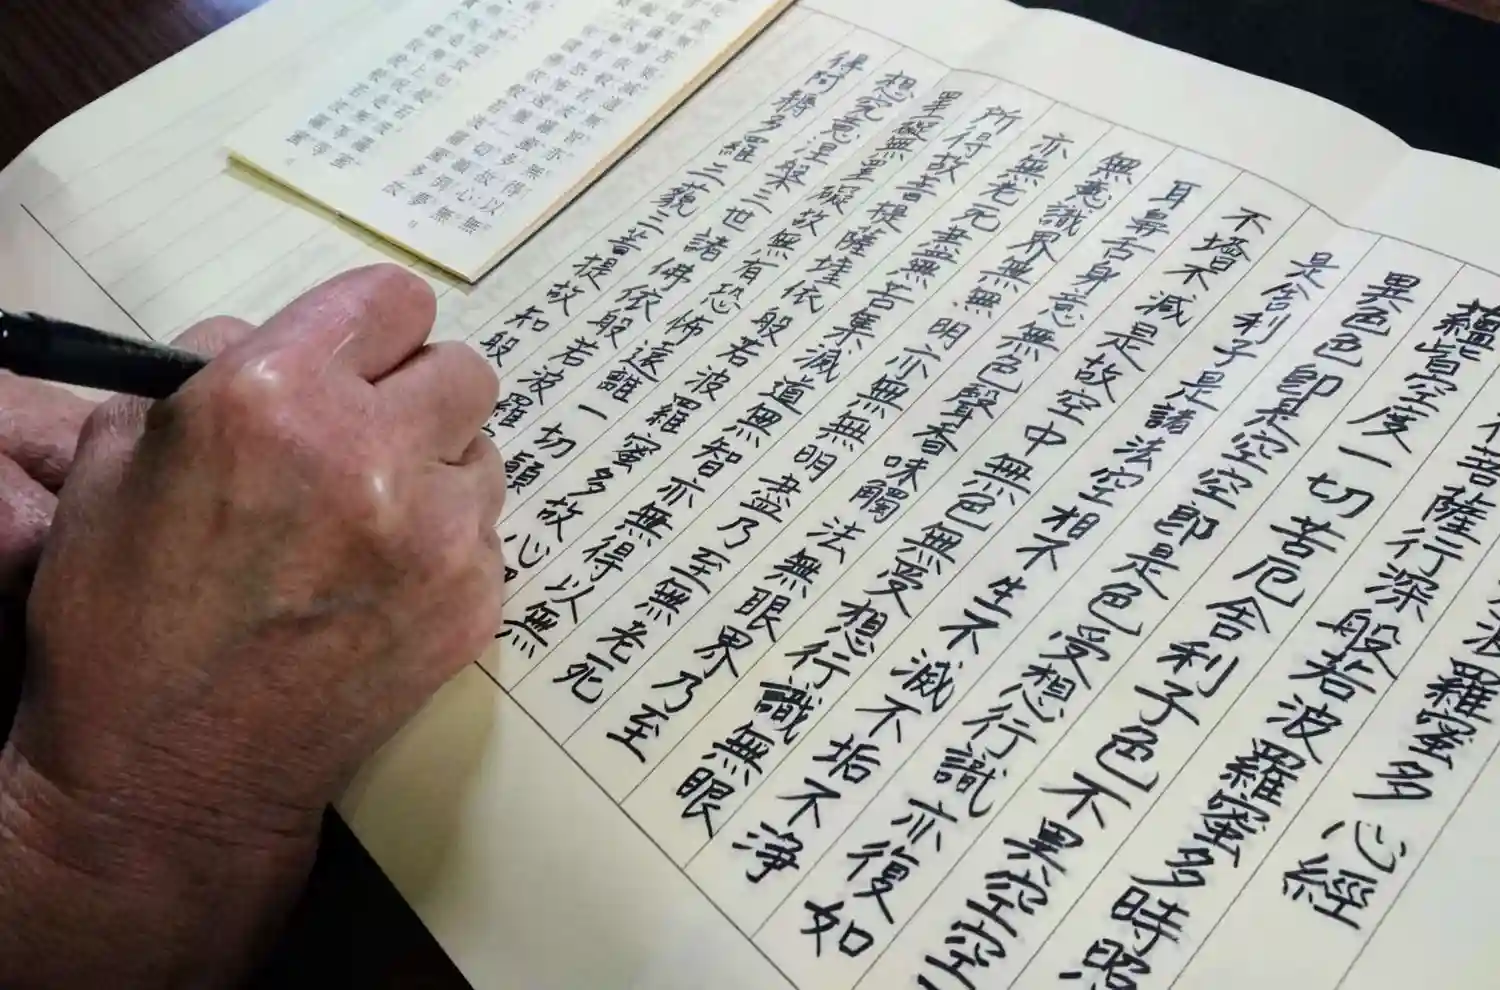 波羅蜜多心經
在菩薩行深般若波羅蜜多時照
蘊皆空度一切苦厄舍利子色不異空空
異色色即是空空即是色受想行識亦復如
是舍利子是諸法空相不生不滅不垢不淨
不增不減是故空中無色無受想行識無眼
耳鼻舌身意無色聲香味觸法無眼界乃至
無意識界無無明亦無無明盡乃至無老死
亦無老死盡無苦集滅道無智亦無得以無
所得故菩提薩埵依般若波羅蜜多故心無
罣礙無罣礙故無有恐怖遠離一切顛
想究竟涅槃三世諸佛依般若波羅
得阿耨多羅三藐三菩提故知般
苦集滅道無智亦無得以無